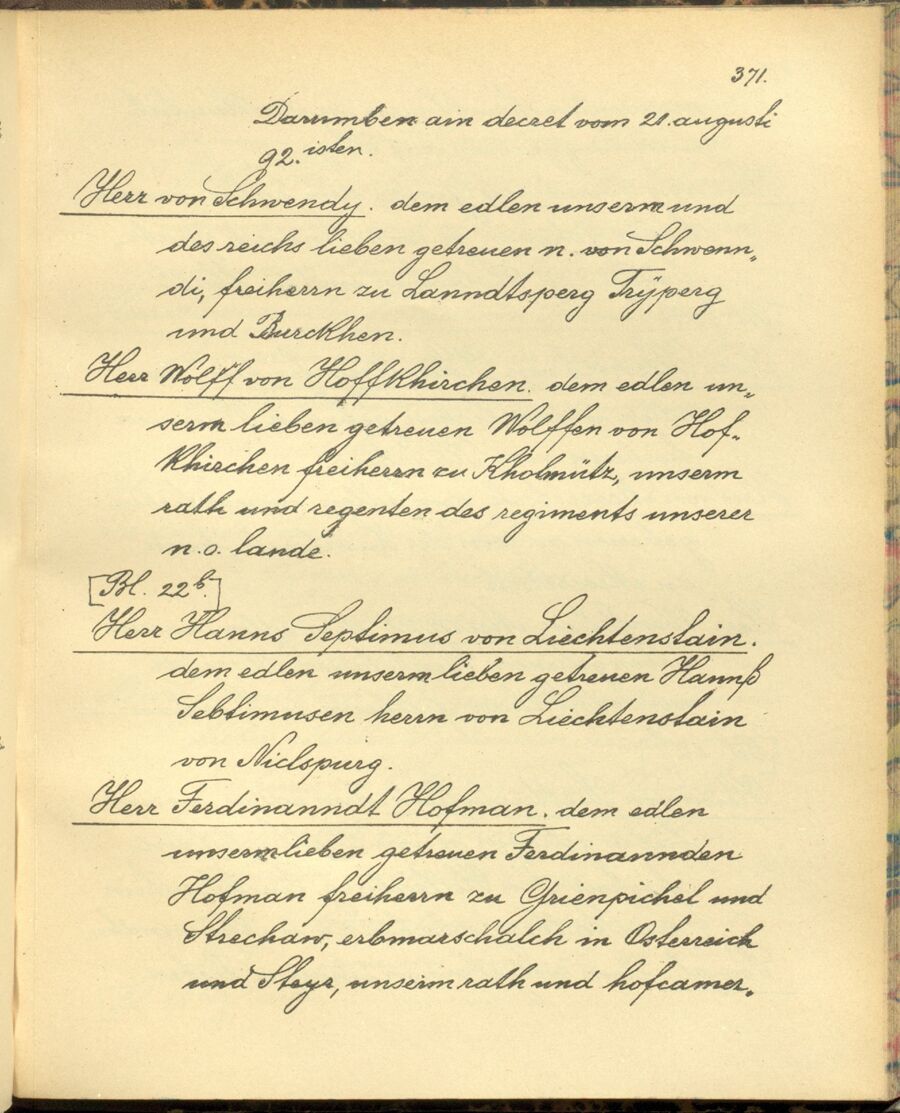 371.
Darumben ain decret vom 21. augusti
92. isten.
Herr von Schwendy. dem edlen unserm und
des reichs lieben getreuen n. von Schwenn„
di, freiherrn zu Lanndtsperg Trÿperg
und Burckhen.
Herr Wolff von Hoffkhirchen. dem edlen un„
serm lieben getreuen Wolffen von Hof„
khirchen freiherrn zu Kholmütz, unserm
rath und regenten des regiments unserer
n. o. lande.
[Bl. 22b.]
Herr Hanns Septimus von Liechtenstain.
dem edlen unserm lieben getreuen Hannß
Sebtimusen herrn von Liechtenstain
von Niclspurg.
Herr Ferdinanndt Hofman. dem edlen
unserm lieben getreuen Ferdinannden
Hofman freiherrn zu Grienpichel und
Strechaw, erbmarschalch in Osterreich
und Steyr, unserm rath und hofcamer„